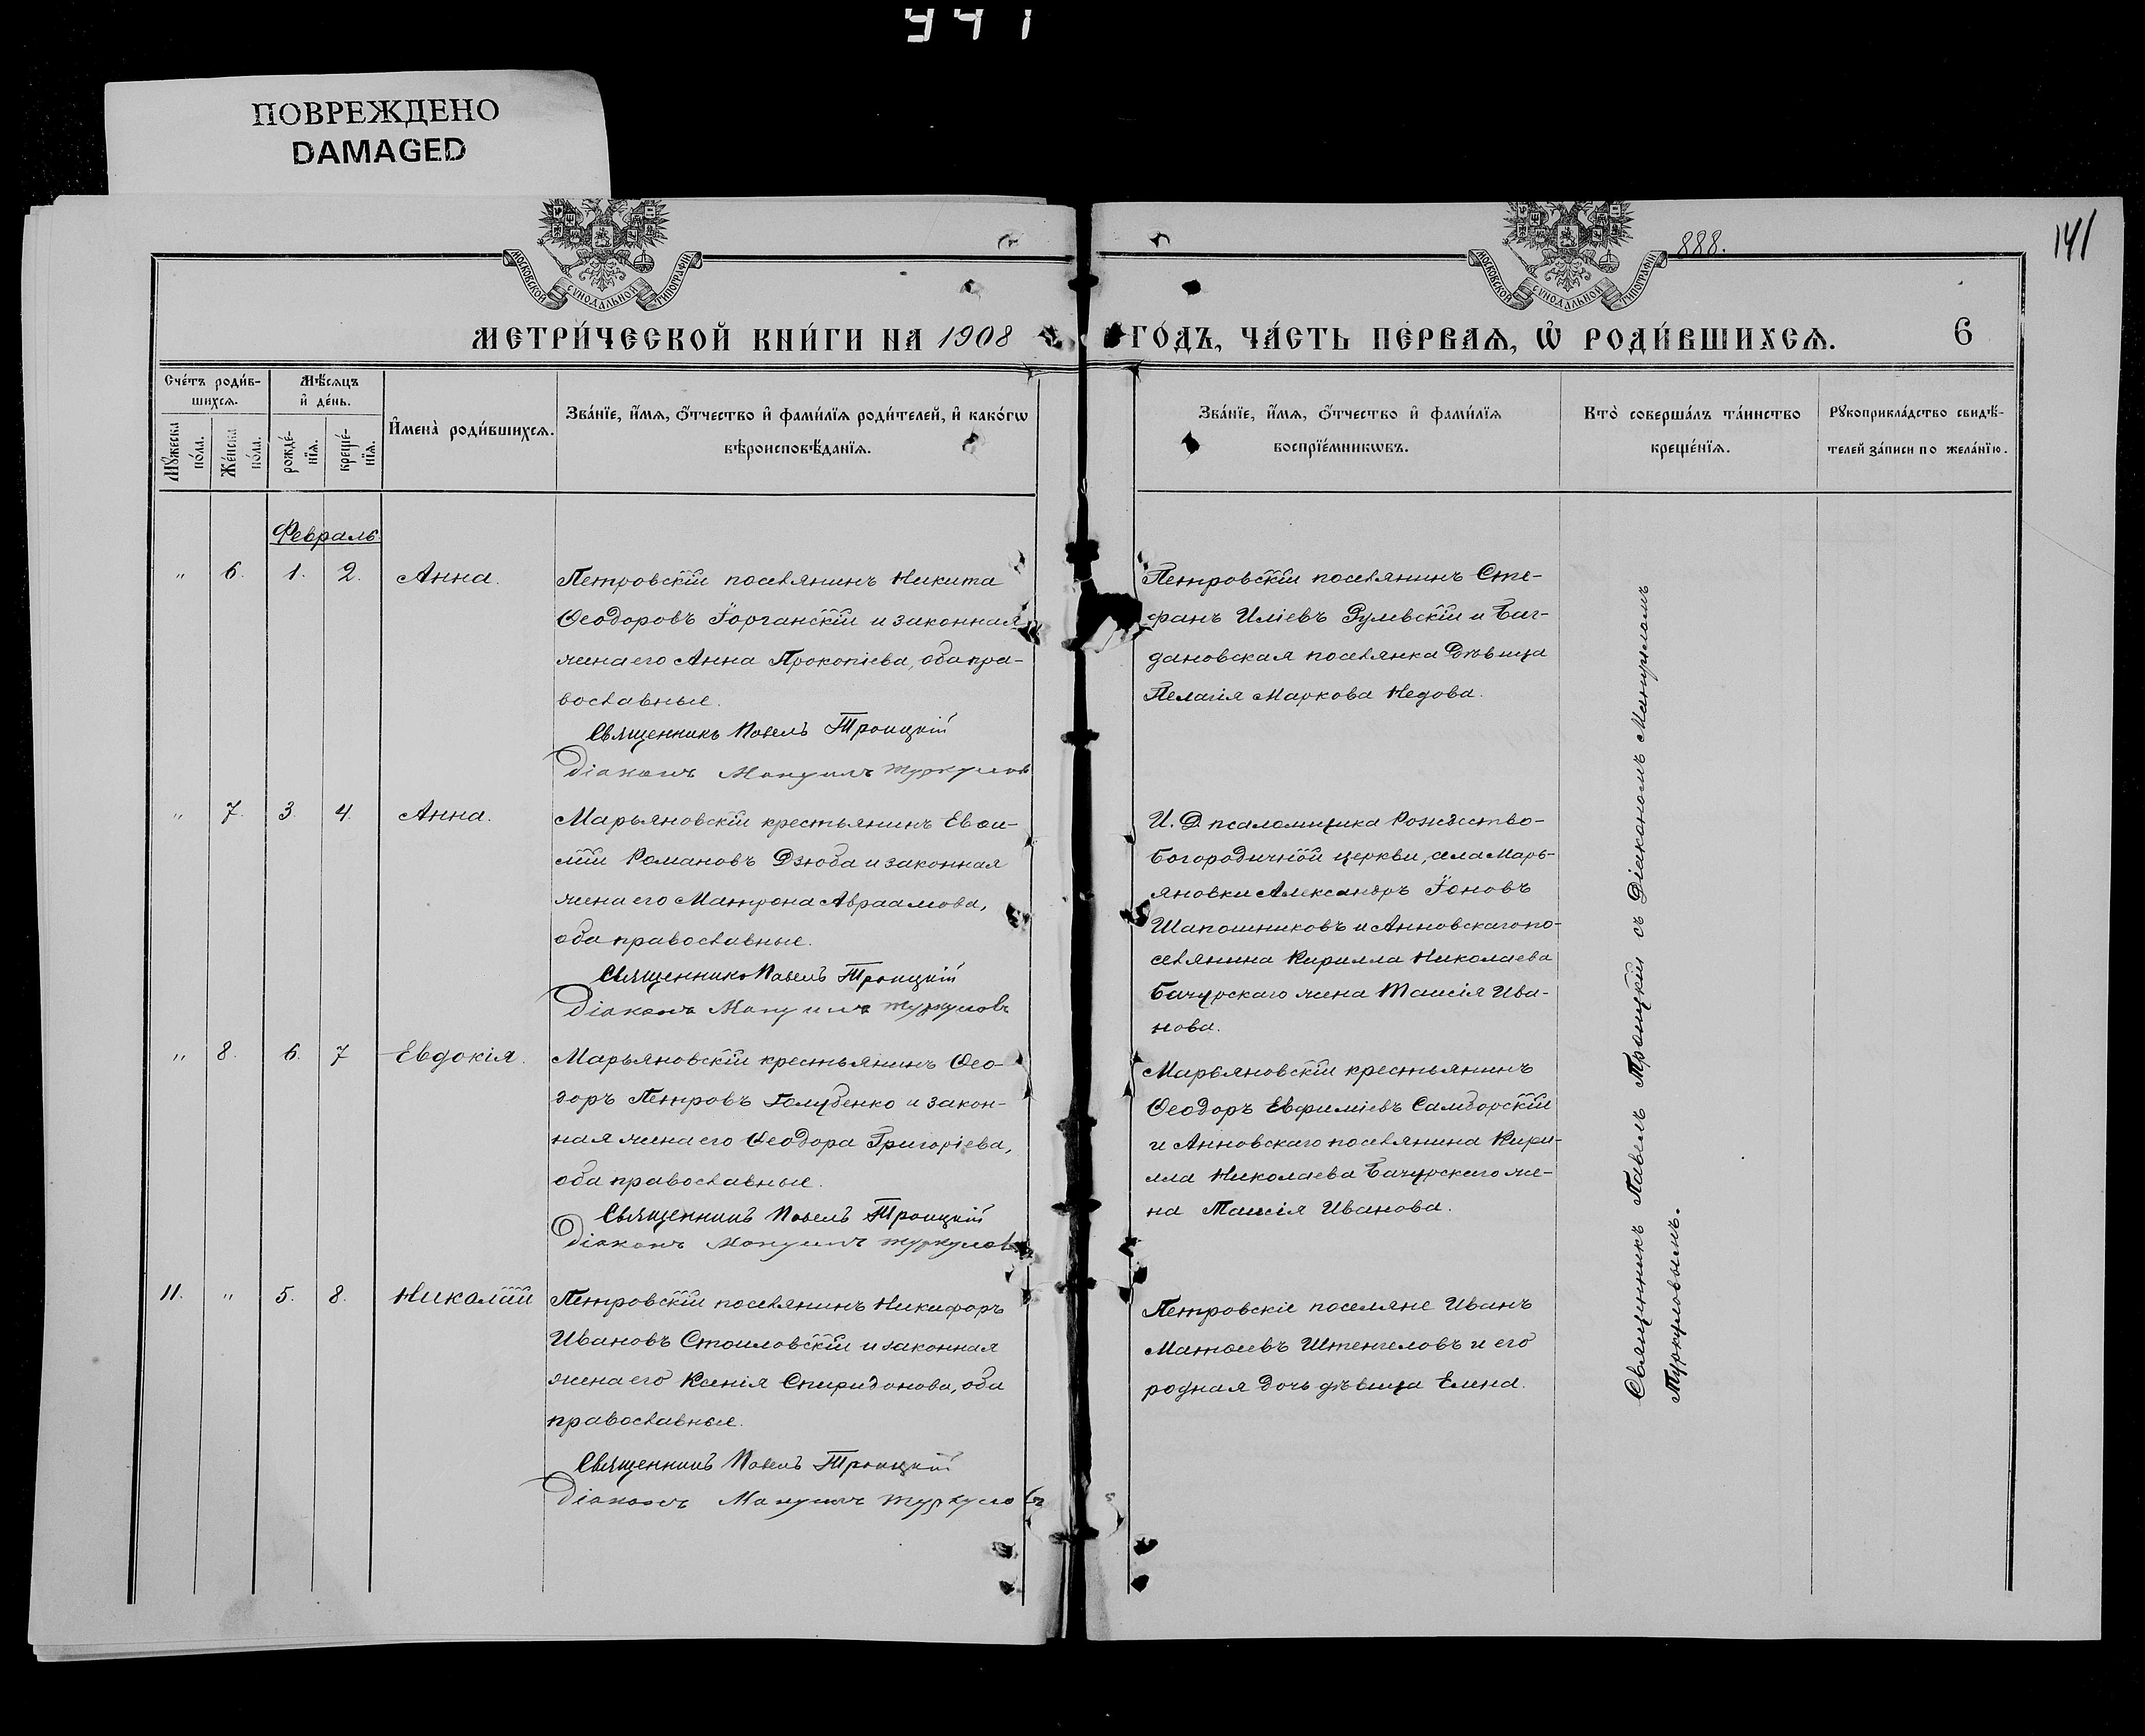 ПОВРЕЖДЕНО
DAMAGED
888.
141
МОСКОВСКОЙ СѴНОДАЛЬНОЙ ТИПОГРАФІИ
МОСКОВСКОЙ СѴНОДАЛЬНОЙ ТИПОГРАФІИ
МЕТРИ́ЧЕСКОЙ КНИ́ГИ НА 1908 ГО́ДЪ, ЧА́СТЬ ПЕ́РВАѦ, Ѡ҆ РОДИ́ВШИХСѦ. 6
Сче́тъ роди́в-
шихсѧ.
Мѣ́сѧцъ
и҆ де́нь.
Мꙋ́жеска по́ла.
Же́нска по́ла.
рожде́-
нїѧ.
креще́-
нїѧ.
И҆мена̀ роди́вшихсѧ.
Зва́нїе, и҆́мѧ, о҆́тчество и҆ фами́лїѧ роди́телей, и҆ како́гѡ
вѣроисповѣ́данїѧ.
Зва́нїе, и҆́мѧ, о҆́тчество и҆ фами́лїѧ
воспрїе́мникѡвъ.
Кто̀ соверша́лъ та́инство
креще́нїѧ.
Рꙋкоприкла́дство свидѣ́-
телей за́писи по жела́нїю.
Февраль
" 6. 1. 2. Анна.
Петровскій поселянинъ Никита
Ѳеодоровъ Іорганскій и законная
жена его Анна Прокопіева, оба пра-
вославные.
Священникъ Павелъ Троицкій
Діаконъ Мануилъ Туркуловъ
Петровскій поселянинъ Сте-
фанъ Иліевъ Рулевскій и Баг-
дановская поселянка дѣвица
Пелагія Маркова Недова.
" 7. 3. 4. Анна.
Марьяновскій крестьянинъ Евѳи-
мій Романовъ Дзюба и законная
жена его Матрона Авраамова,
оба православные.
Священникъ Павелъ Троицкій
Діаконъ Мануилъ Туркуловъ
И. Д. псаломщика Рождество-
Богородичной церкви, села Марь-
яновки Александръ Іоновъ
Шапошниковъ и Анновскаго по-
селянина Кирилла Николаева
Бачурскаго жена Таисія Ива-
нова.
" 8. 6. 7 Евдокія.
Марьяновскій крестьянинъ Ѳео-
доръ Петровъ Голубенко и закон-
ная жена его Ѳеодора Григоріева,
оба православные.
Священникъ Павелъ Троицкій
Діаконъ Мануилъ Туркуловъ
Марьяновскій крестьянинъ
Ѳеодоръ Евфиміевъ Самборскій
и Анновскаго поселянина Кири-
лла Николаева Бачурскаго же-
на Таисія Иванова.
11. " 5. 8. Николай
Петровскій поселянинъ Никифоръ
Ивановъ Стоиловскій и законная
жена его Ксенія Спиридонова, оба
православные.
Священникъ Павелъ Троицкій
Діаконъ Мануилъ Туркуловъ
Петровскіе поселяне Иванъ
Матѳеевъ Штенгеловъ и его
родная дочь дѣвица Елена.
Священникъ Павелъ Троицкій съ Діакономъ Мануиломъ
Туркуловымъ.